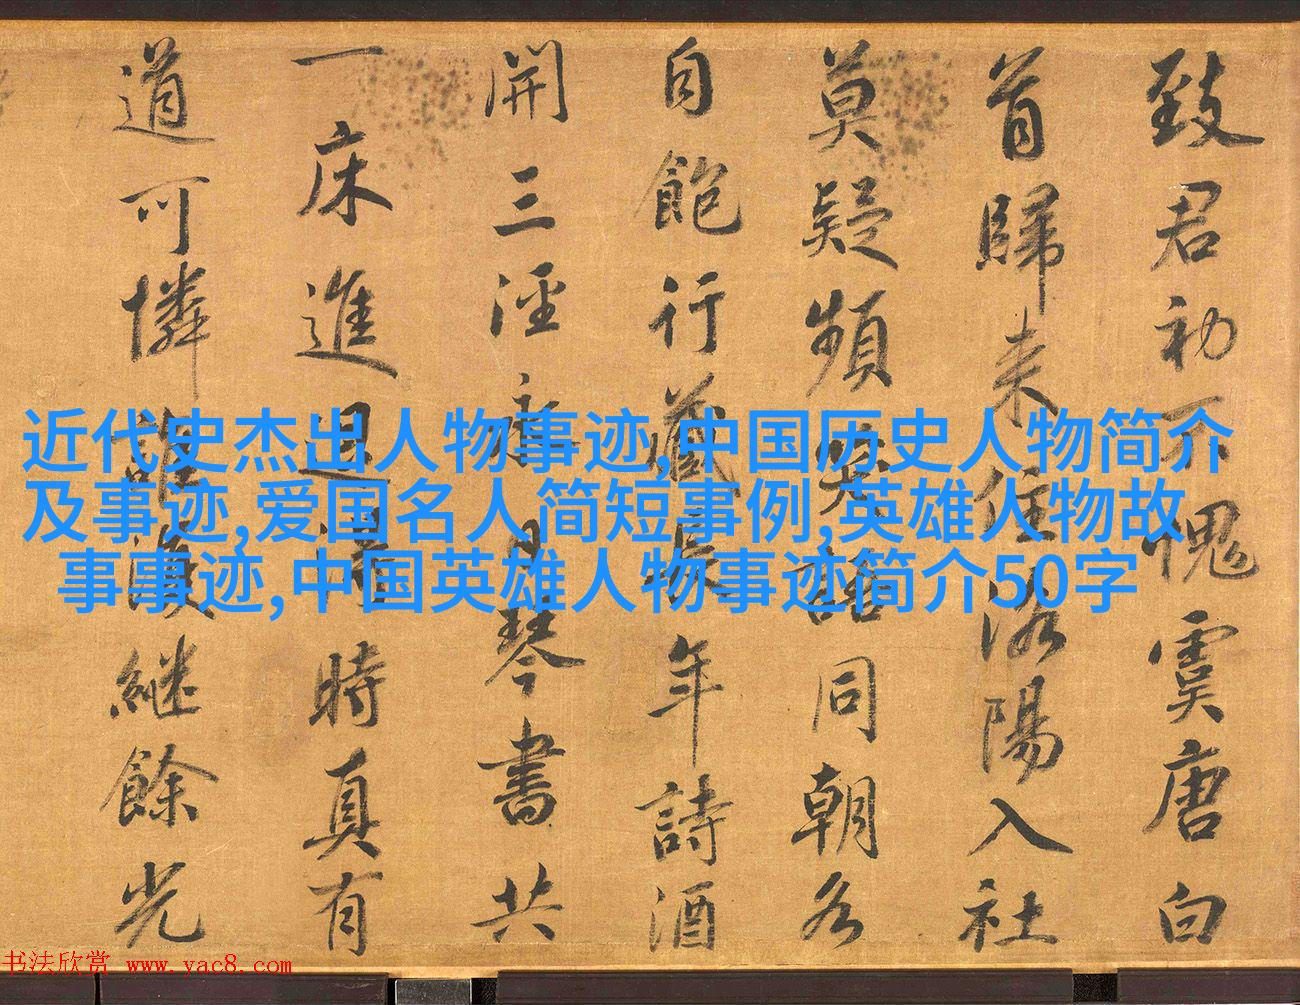 致君初不愧虞唐白
首歸来住洛陽入社
莫疑頻笑語同朝各
自飽行藏長年詩酒
開三涇永日琴書共
一床進退時真有
道可憐誰継餘光
近代史杰出人物事迹,中国历史人物简介
及事迹,爱国名人简短事例,英雄人物故
事事迹,中国英雄人物事迹简介50字
书法欣赏 www.yac8.com